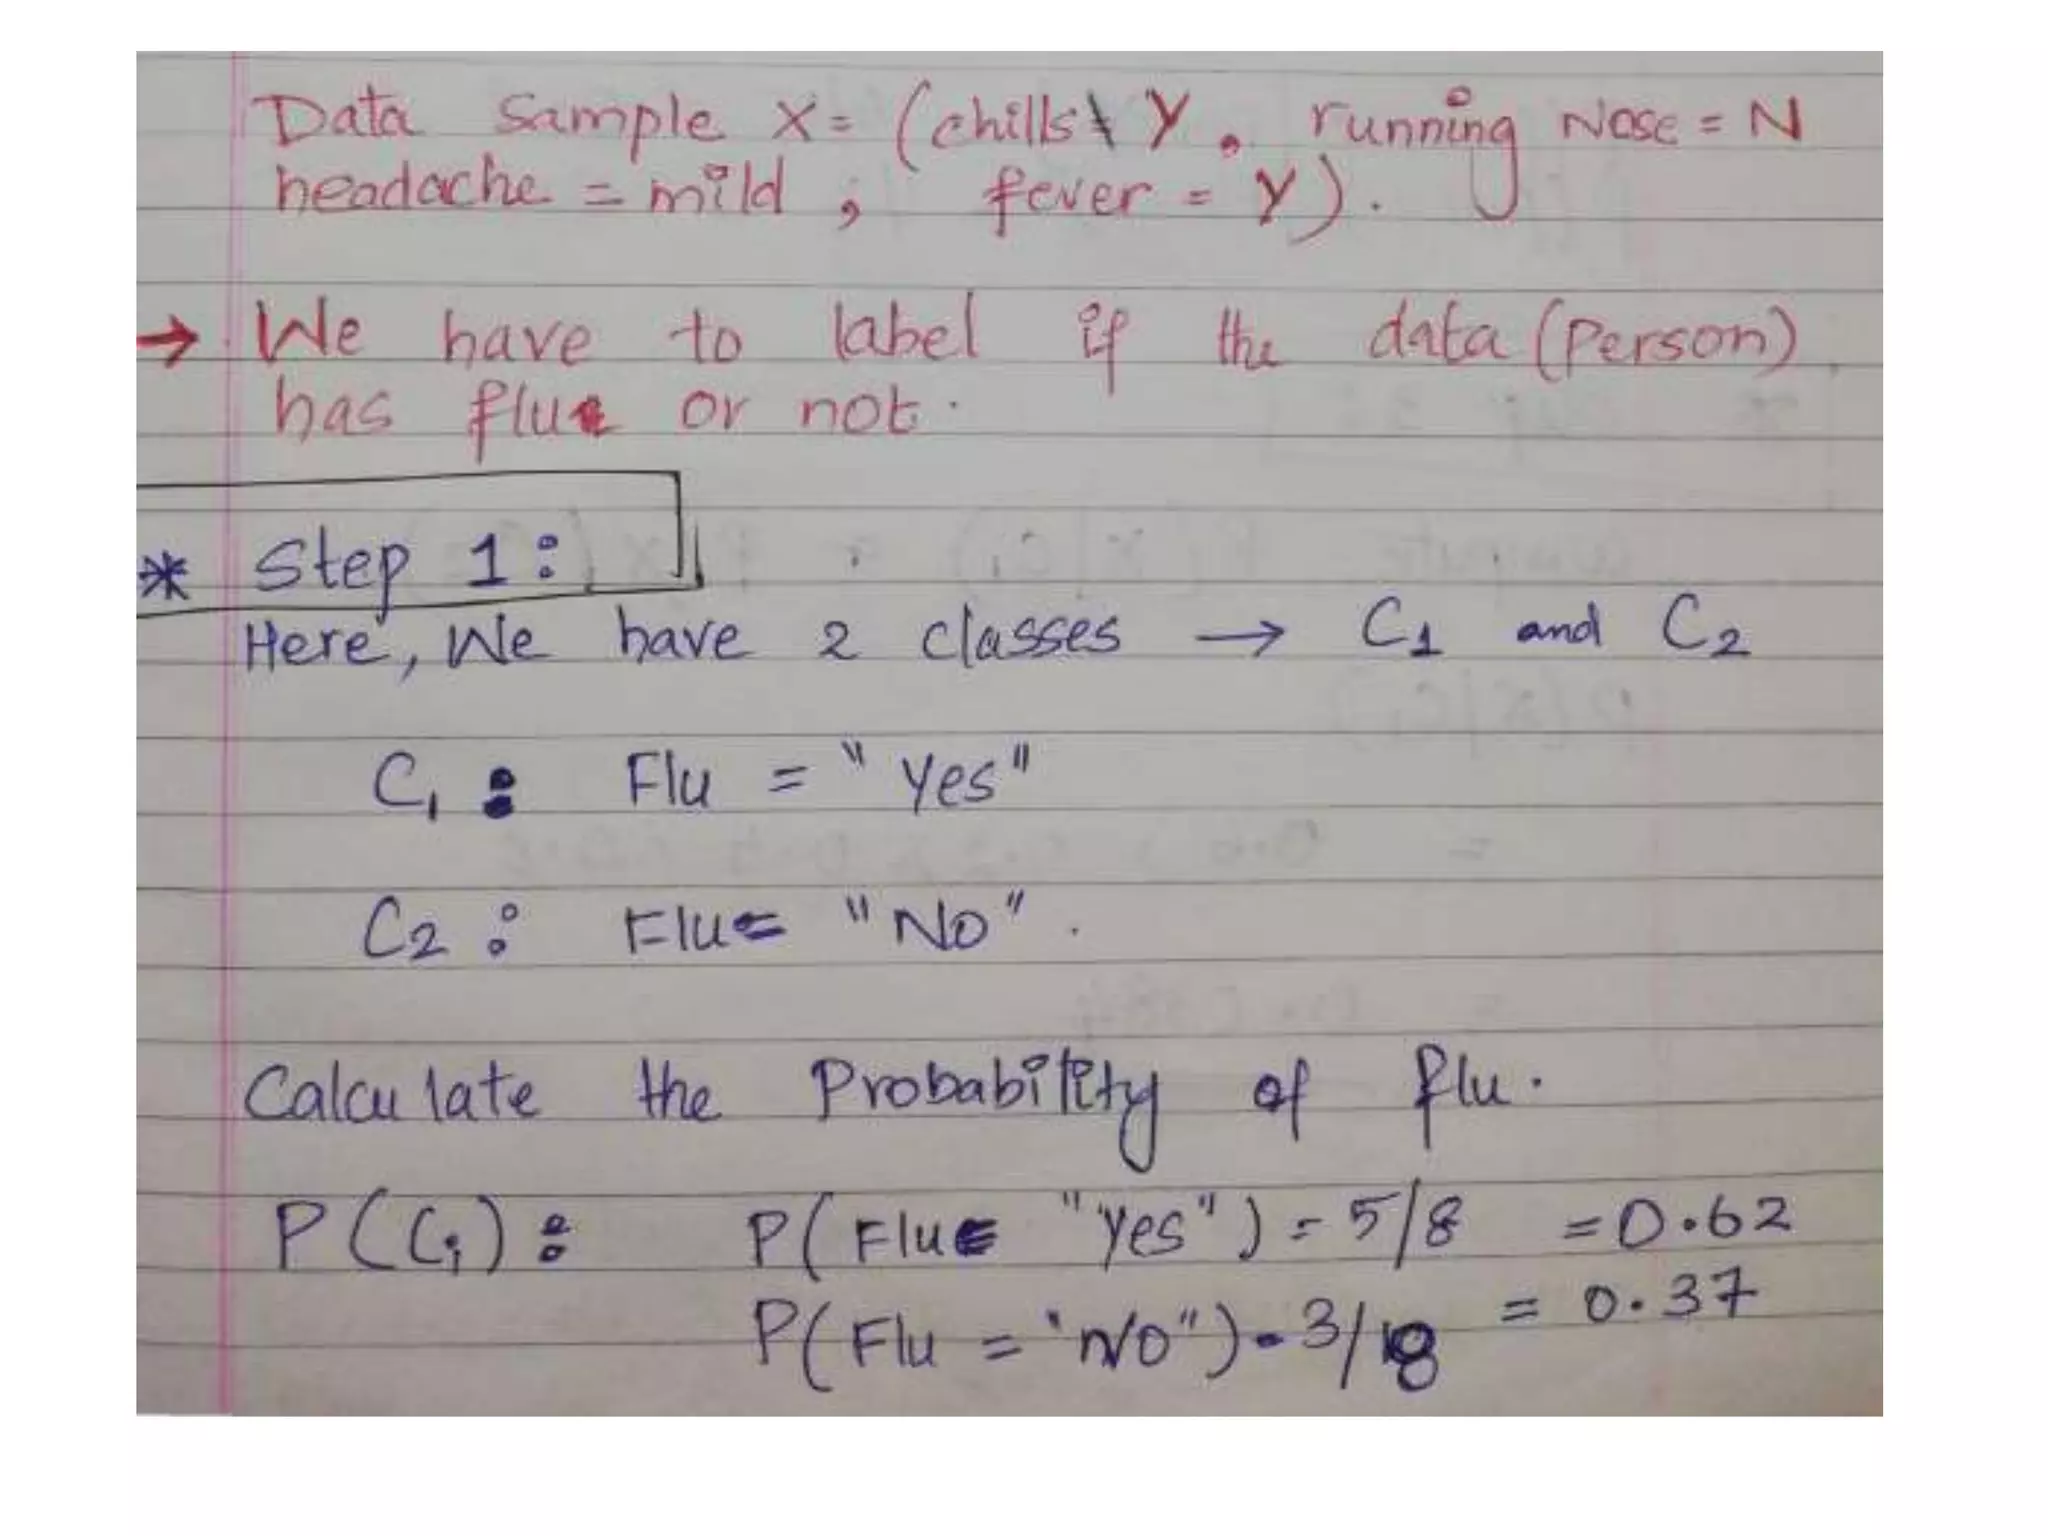 Data Sample X = (chills Y, running Nose = N
headache = mild, fever = Y).
→ We have to label if the data (Person)
has flu or not.
* Step 1:
Here, We have 2 classes → C1 and C2
C1 : Flu = "Yes"
C2 : Flu = "No".
Calculate the Probability of flu.
P(Ci): P(Flu = "Yes") = 5/8 = 0.62
P(Flu = "No") = 3/8 = 0.37